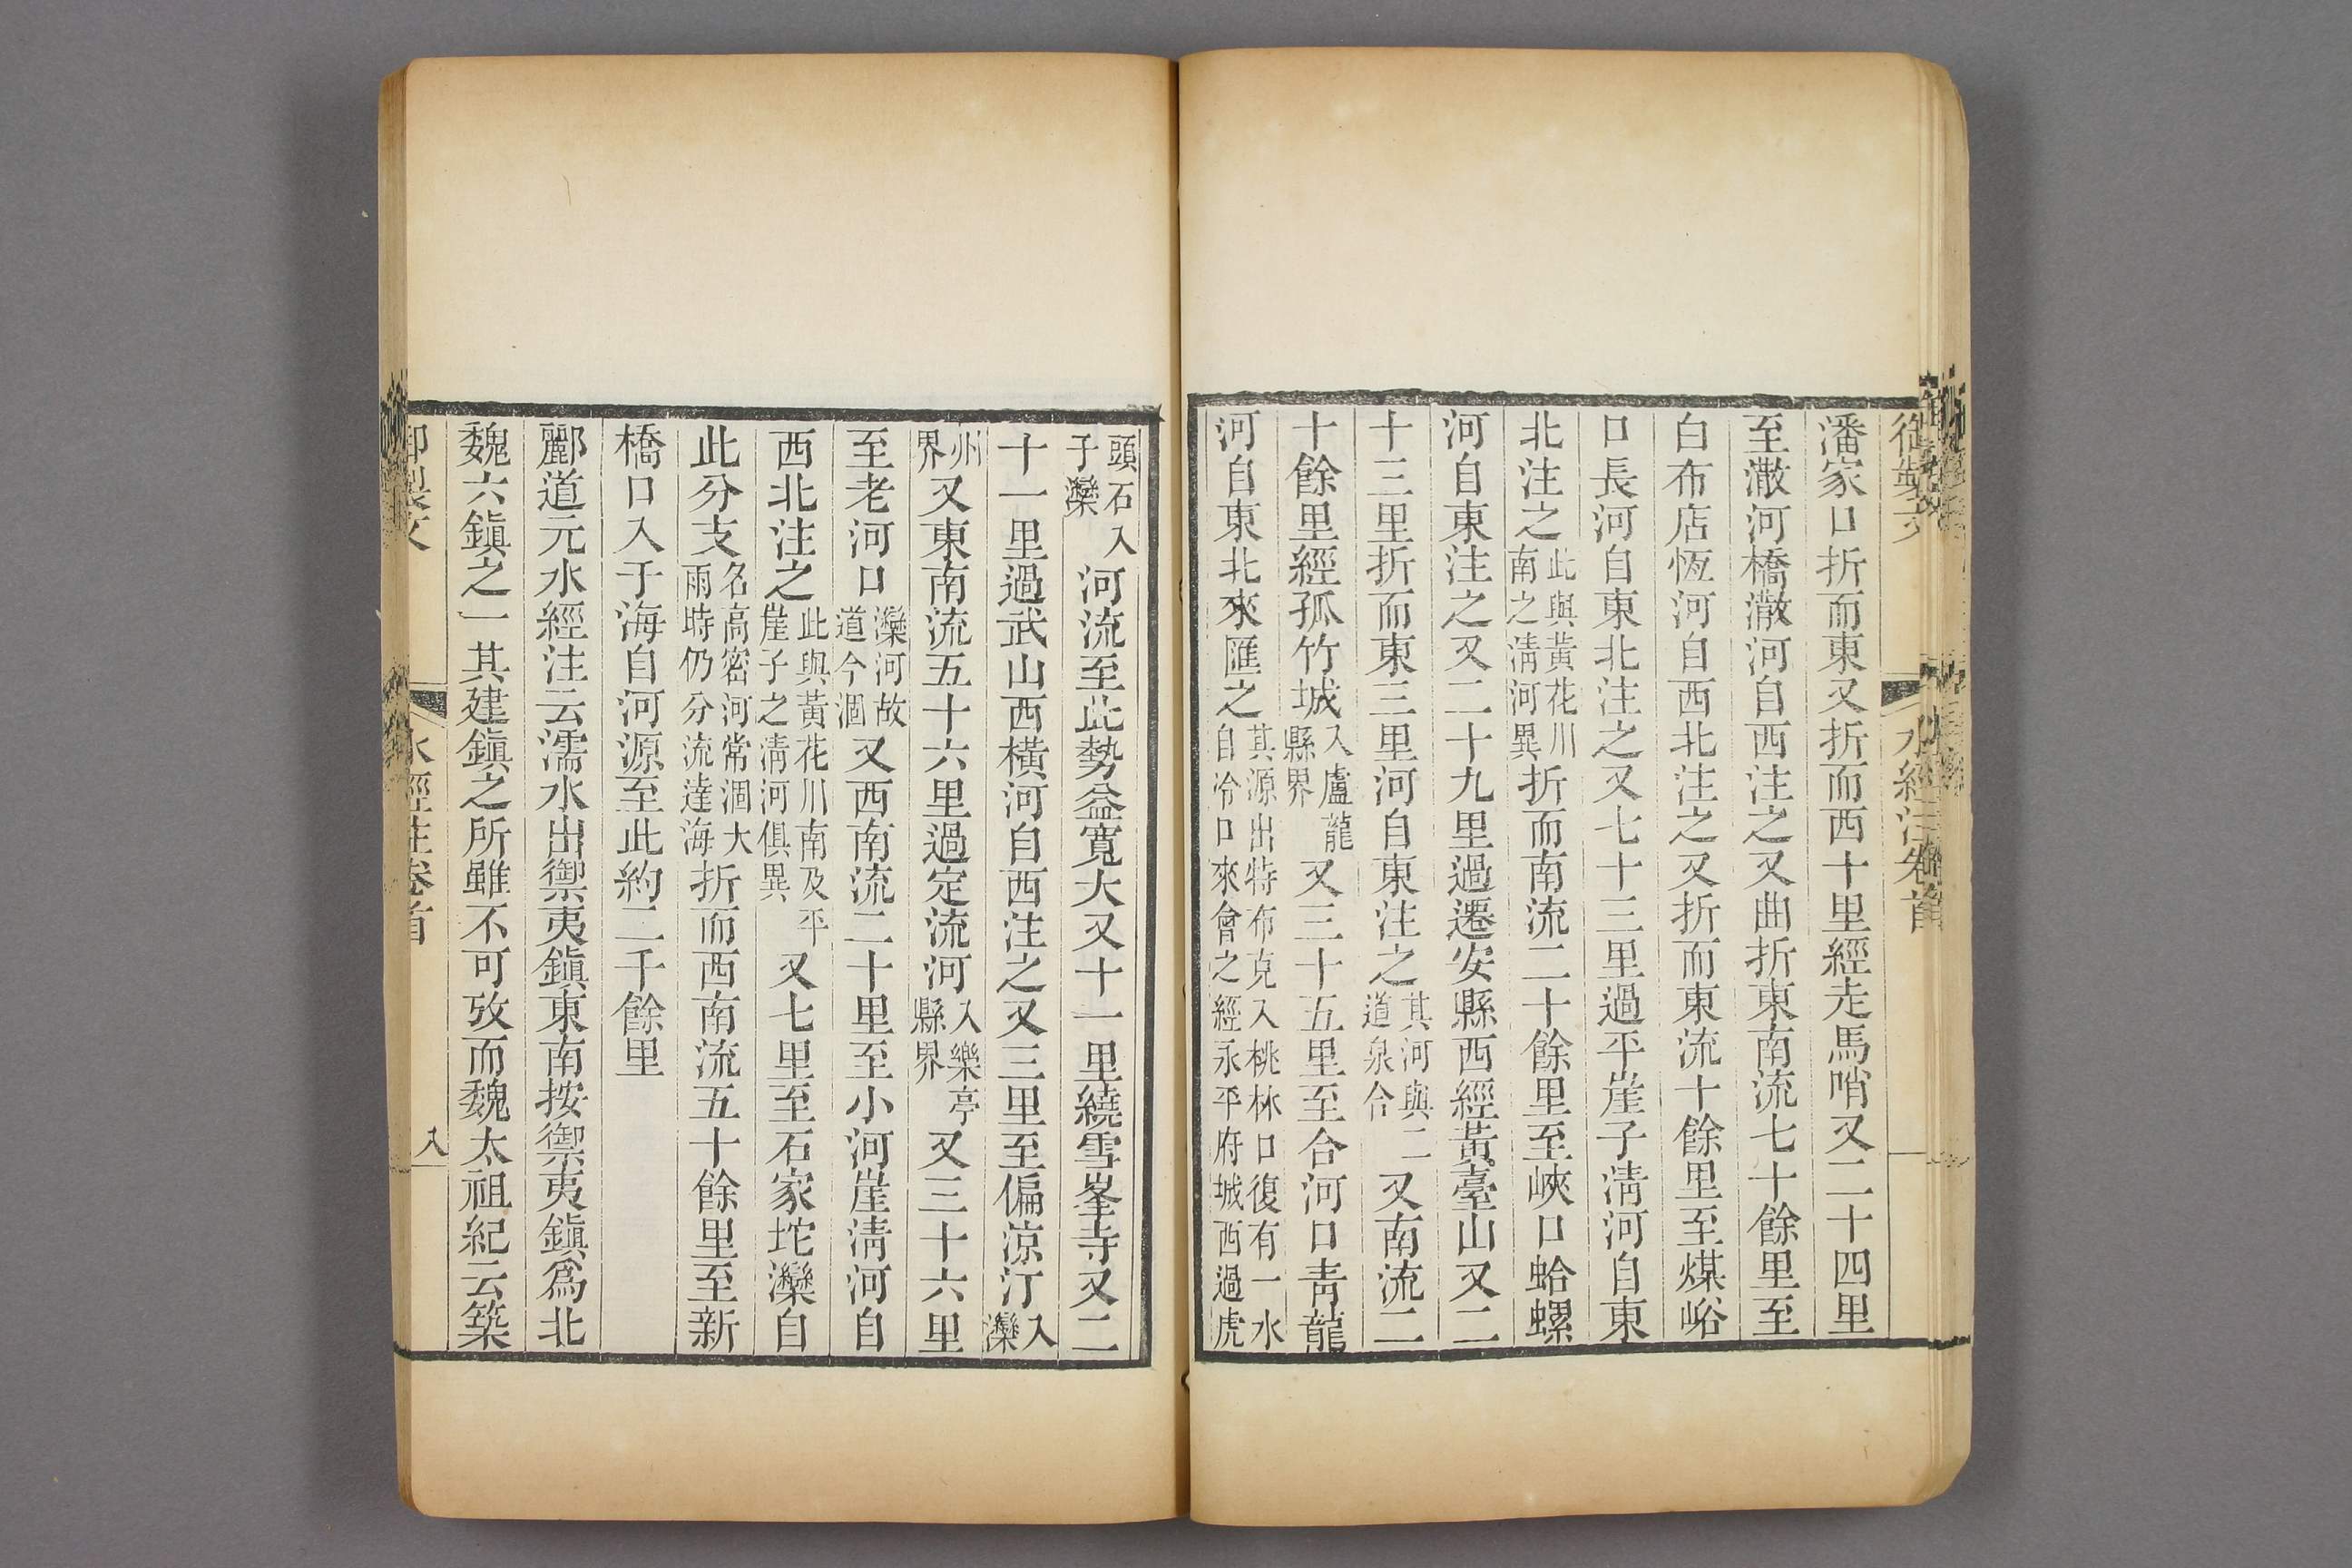 御製文
水經注卷首
潘家口折而東又折而西十里經走馬哨又二十四里
至澉河橋澉河自西注之又曲折東南流七十餘里至
白布店恆河自西北注之又折而東流十餘里至煤峪
口長河自東北注之又七十三里過平崖子淸河自東
北注之此與黃花川南之淸河異折而南流二十餘里至峽口蛤螺
河自東注之又二十九里過遷安縣西經黃臺山又二
十三里折而東三里河自東注之其河與二道泉合又南流二
十餘里經孤竹城入盧龍縣界又三十五里至合河口靑龍
河自東北來匯之其源出特布克入桃林口復有一水自冷口來會之經永平府城西過虎
頭石入子灤河流至此勢益寬大又十一里繞雪峯寺又二
十一里過武山西橫河自西注之又三里至偏涼汀入灤
州界又東南流五十六里過定流河入樂亭縣界又三十六里
至老河口灤河故道今涸又西南流二十里至小河崖淸河自
西北注之此與黃花川南及平崖子之淸河俱異又七里至石家坨灤自
此分支名高密河常涸大雨時仍分流達海折而西南流五十餘里至新
橋口入于海自河源至此約二千餘里
酈道元水經注云濡水出禦夷鎭東南按禦夷鎭爲北
魏六鎭之一其建鎭之所雖不可攷而魏太祖紀云築
御製文
水經注卷首
八